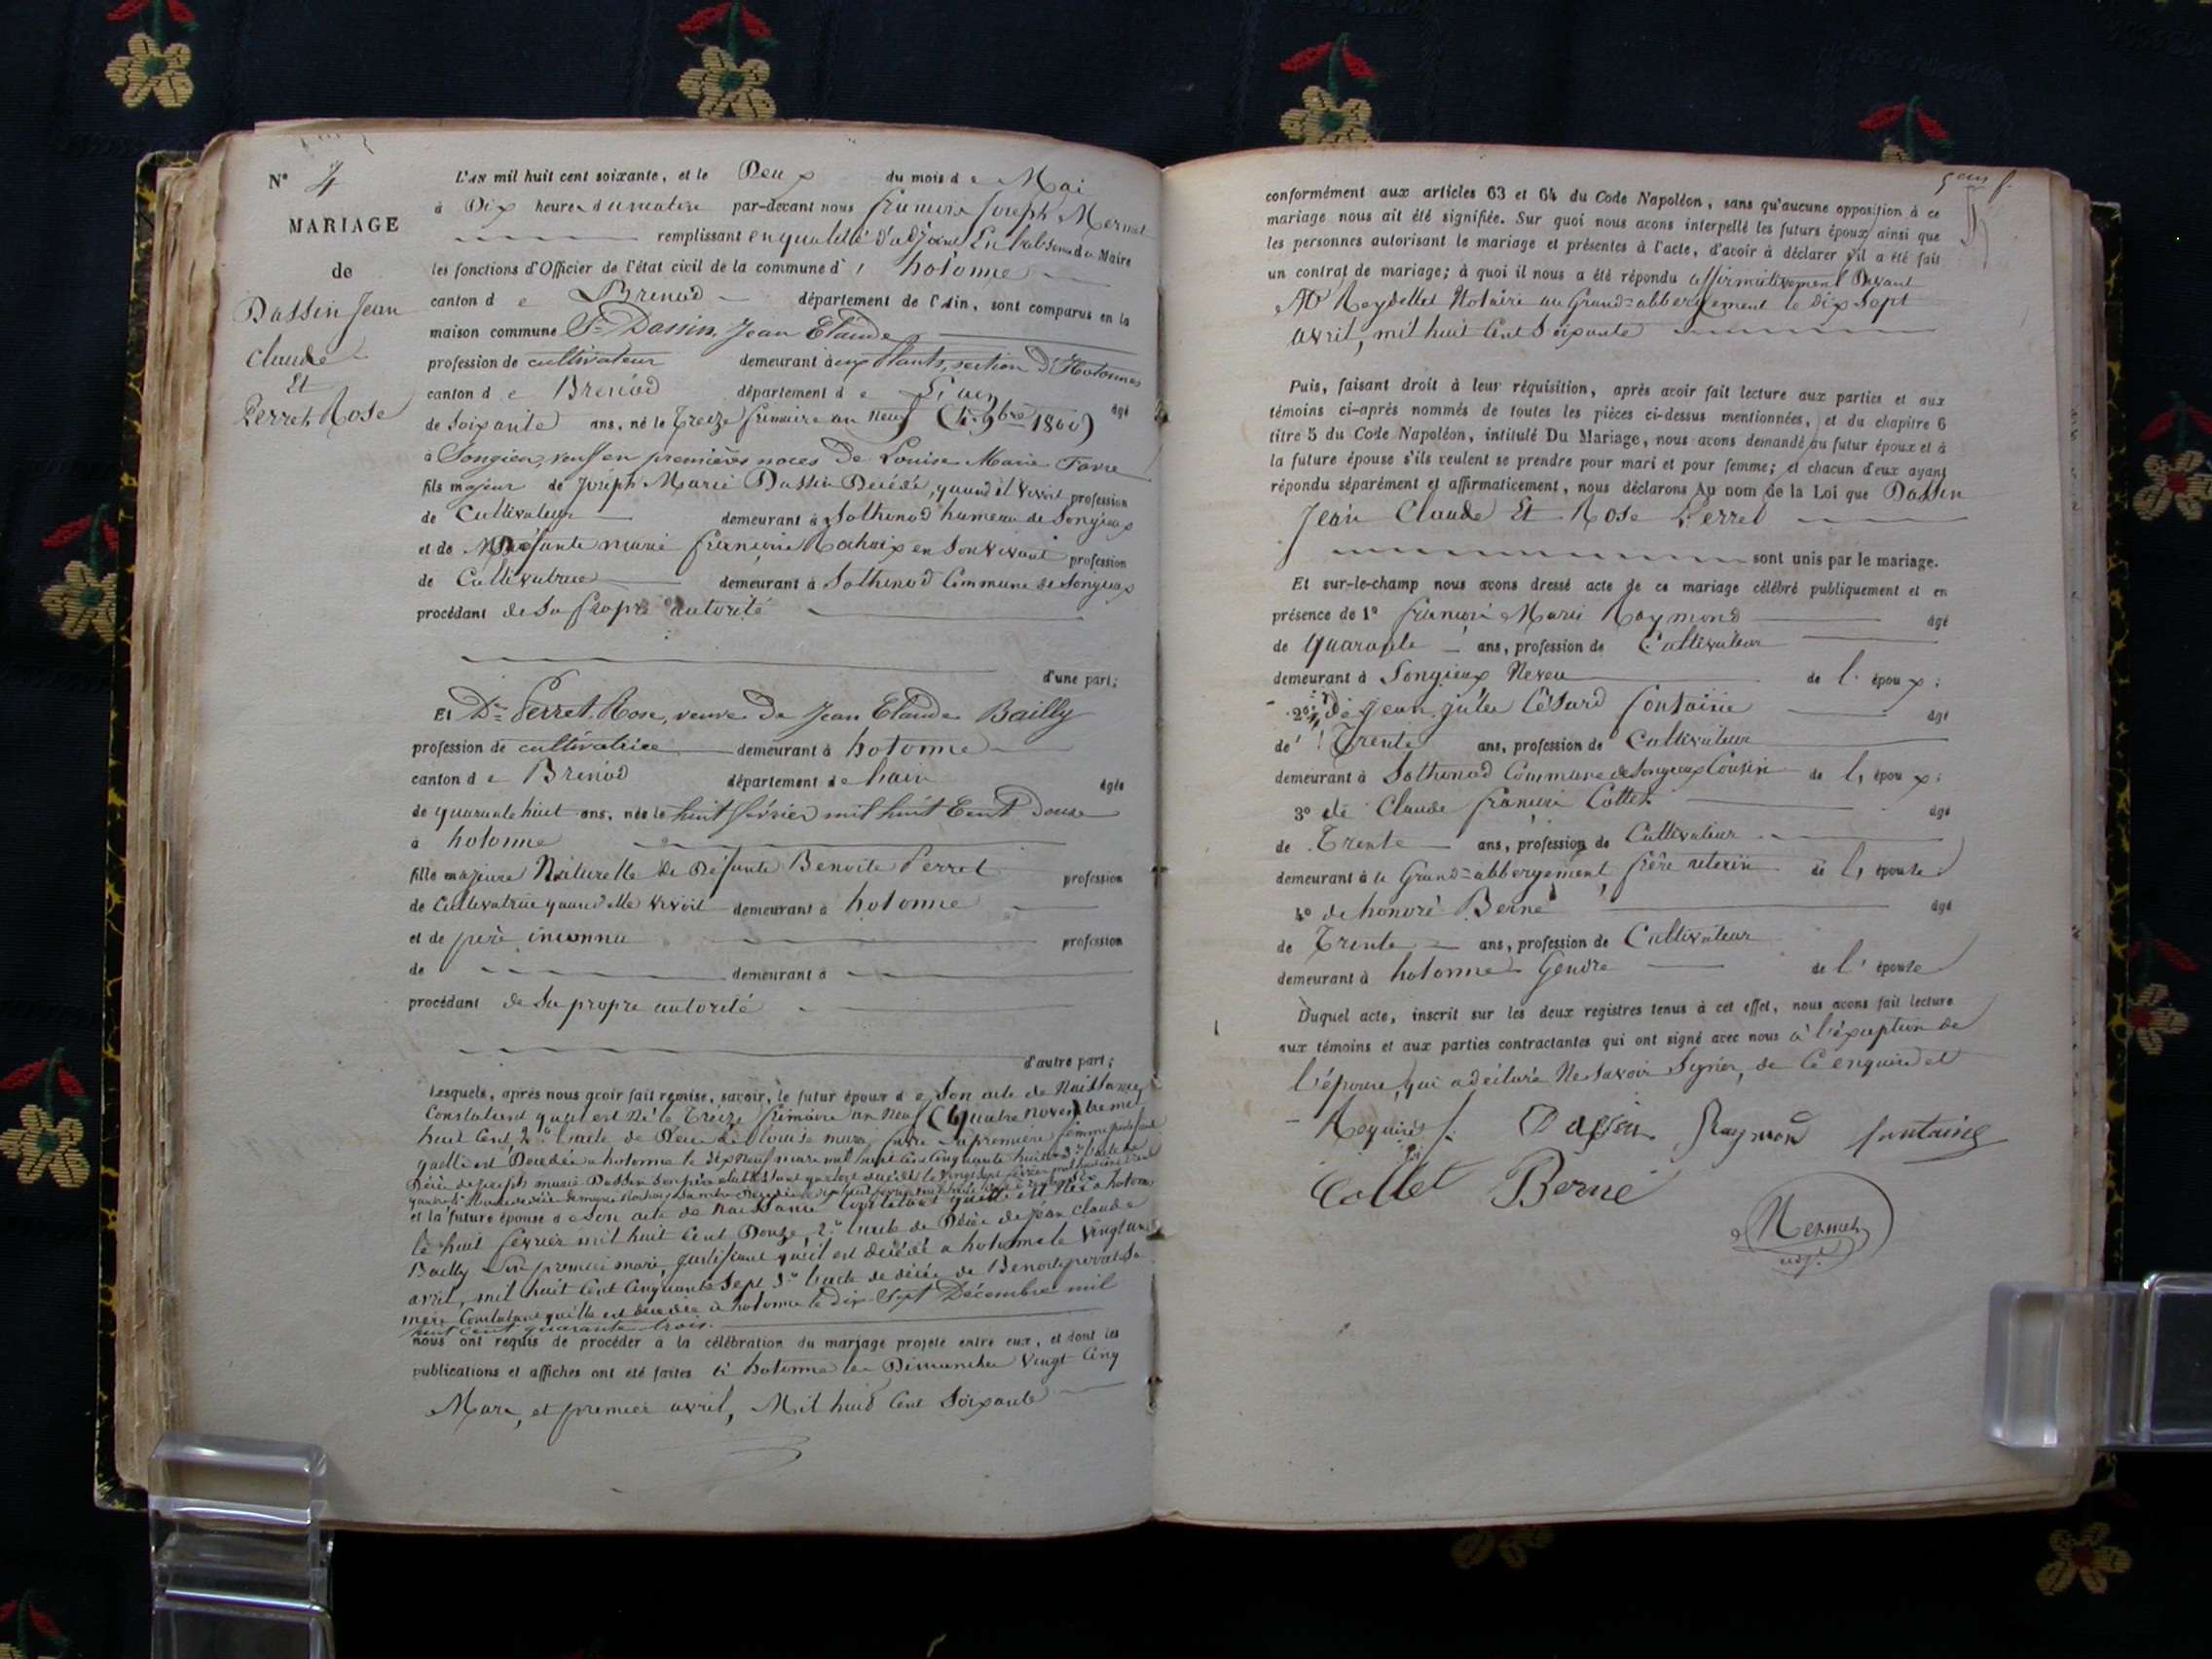 N° 4
MARIAGE
de
Dassin Jean
Claude
Et
Perret Rose
L'AN mil huit cent soixante, et le Deux du mois de Mai
à Dix heures du matin par-devant nous françois Joseph Mermet
remplissant en qualité d'adjoint En du Maire
les fonctions d'Officier de l'état civil de la commune d' hotonne
canton de Brenod département de l'Ain, sont comparus en la
maison commune Sr Dassin, Jean Claude
profession de cultivateur demeurant aux plants, section d'Hotonnes
canton de Brenod département de l'ain âgé
de soixante ans, né le treize frimaire an neuf (4 9bre 1800)
à Songieu, veuf en premières noces de Louise Marie Favre
fils majeur de Joseph Marie Dassin Décédé, quand il vivoit profession
de Cultivateur demeurant à Sothonod hameau de Songieux
et de Défunte marie françoise Rochaix en son vivant profession
de Cultivatrice demeurant à Sothonod Commune de Songieux
procédant de sa propre autorité
d'une part;
Et De Perret Rose, veuve de Jean Claude Bailly
profession de cultivatrice demeurant à hotonne
canton de Brenod département de hain âgée
de quarante huit ans, née le huit février mil huit Cent Douze
à hotonne
fille majeure Naturelle de Défunte Benoite Perret profession
de Cultivatrice quand elle vivoit demeurant à hotonne
et de père inconnu profession
de demeurant à
procédant de sa propre autorité
d'autre part;
Lesquels, après nous avoir fait remise, savoir, le futur époux de son acte de Naissance
Constatant qu'il est Né le treize frimaire an Neuf (quatre novembre mil
huit Cent, 2° l'acte de Décès de louise marie favre sa première femme
qu'elle est Décédée a hotonne le dix neuf mars mil huit Cent Cinquante huit 3° l'acte de
Décès de joseph marie Dassin son père
et la future épouse de son acte de naissance Constatant qu'elle est Née à hotonne
le huit février mil huit Cent Douze, 2° l'acte de Décès de jean claude
Bailly son premier mari, justifiant qu'il est décédé a hotonne le vingt un
avril, mil huit Cent Cinquante Sept 3° l'acte de décès de Benoite perret sa
mère Constatant qu'elle est décédée à hotonne le dix Sept Décembre mil
huit cent quarante trois.
nous ont requis de procéder à la célébration du mariage projeté entre eux, et dont les
publications et affiches ont été faites à hotonne les Dimanches vingt Cinq
Mars, et premier avril, Mil huit Cent Soixante
5eme f.
conformément aux articles 63 et 64 du Code Napoléon, sans qu'aucune opposition à ce
mariage nous ait été signifiée. Sur quoi nous avons interpellé les futurs époux ainsi que
les personnes autorisant le mariage et présentes à l'acte, d'avoir à déclarer s'il a été fait
un contrat de mariage; à quoi il nous a été répondu affirmativement Devant
Me Reydellet Notaire au Grand=abbergement le Dix Sept
avril, mil huit Cent Soixante
Puis, faisant droit à leur réquisition, après avoir fait lecture aux parties et aux
témoins ci-après nommés de toutes les pièces ci-dessus mentionnées, et du chapitre 6
titre 5 du Code Napoléon, intitulé Du Mariage, nous avons demandé au futur époux et à
la future épouse s'ils veulent se prendre pour mari et pour femme; et chacun d'eux ayant
répondu séparément et affirmativement, nous déclarons Au nom de la Loi que Dassin
Jean Claude Et Rose Perret
sont unis par le mariage.
Et sur-le-champ nous avons dressé acte de ce mariage célébré publiquement et en
présence de 1° françois Marie Raymond âgé
de quarante ans, profession de Cultivateur
demeurant à Songieux Neveu de l'époux;
2° de jean jules César fontaine âgé
de Trente ans, profession de Cultivateur
demeurant à Sothonod Commune de Songieux Cousin de l'époux;
3° de Claude françois Collet âgé
de Trente ans, profession de Cultivateur
demeurant à le Grand=abbergement frère uterin de l'épouse
4° de honoré Berne âgé
de Trente ans, profession de Cultivateur
demeurant à hotonne Gendre de l'épouse
Duquel acte, inscrit sur les deux registres tenus à cet effet, nous avons fait lecture
aux témoins et aux parties contractantes qui ont signé avec nous à l'exception de
l'épouse, qui a déclaré Ne Savoir Signer, de Ce enquise et
Requise /. Dassin Raymond fontaine
Collet Berne
Mermet
adj.